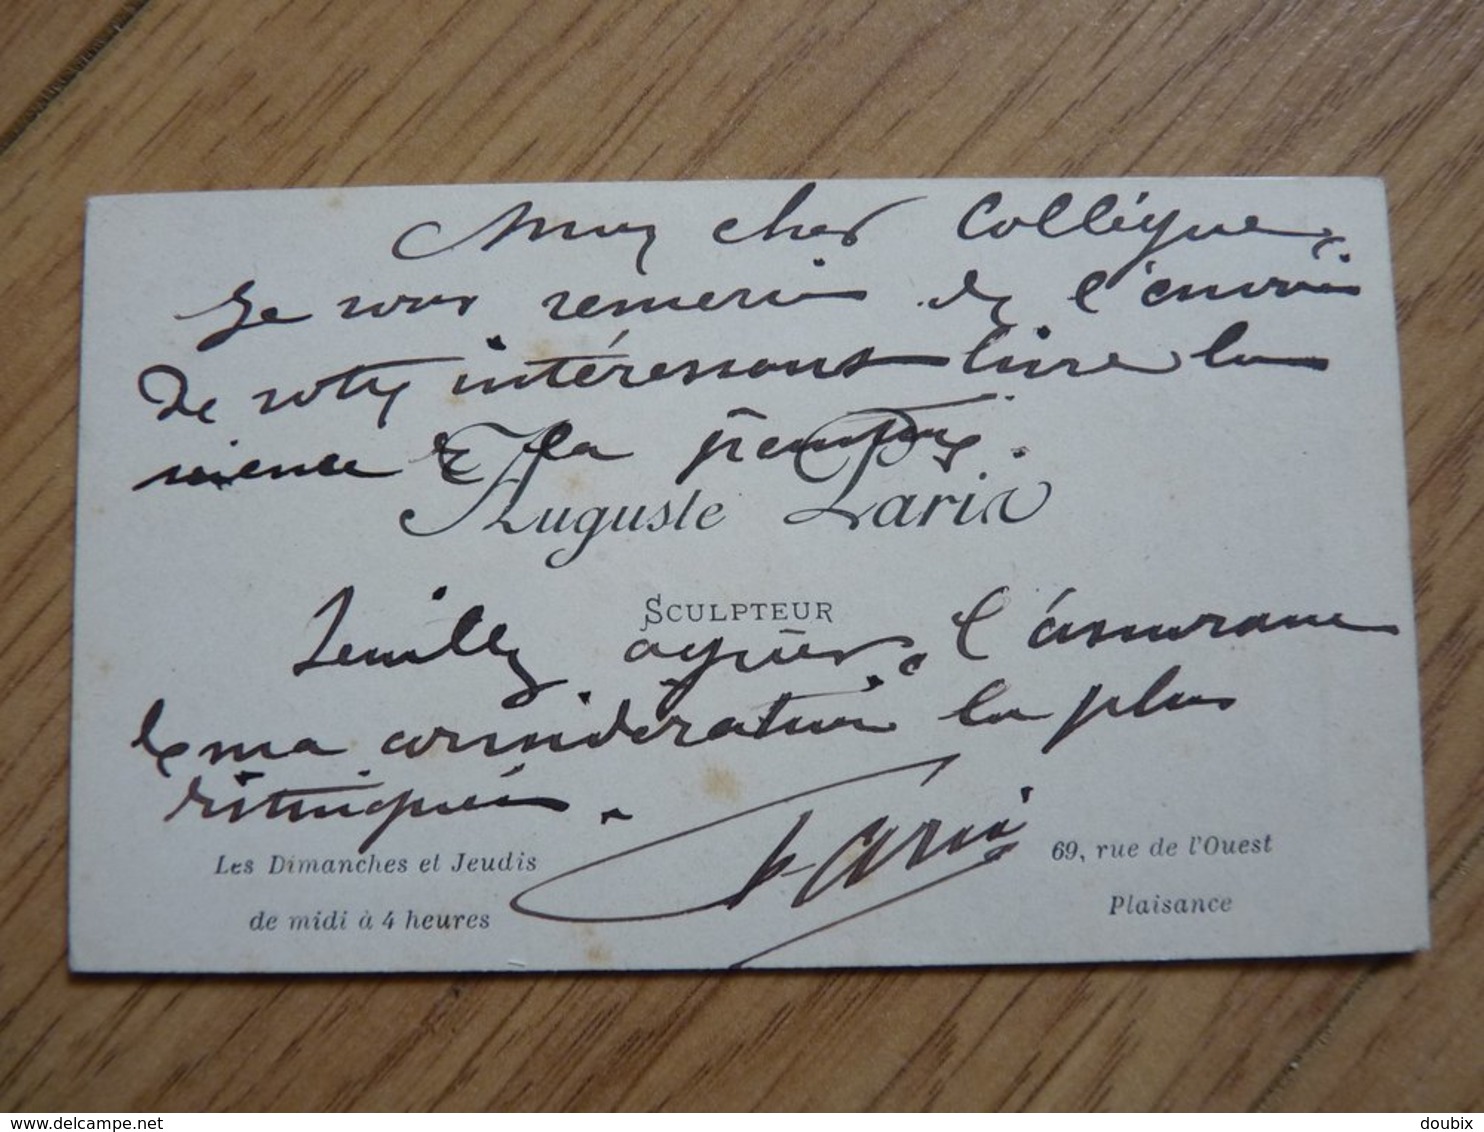 Mon cher Collègue,
Je vous remercie de l'envoi
de votre intéressant livre la
science de la peinture.
Auguste Paris
SCULPTEUR
Veuillez agréer, l'assurance
de ma considération la plus
distinguée.
Paris
Les Dimanches et Jeudis
de midi à 4 heures
69, rue de l'Ouest
Plaisance
doubix